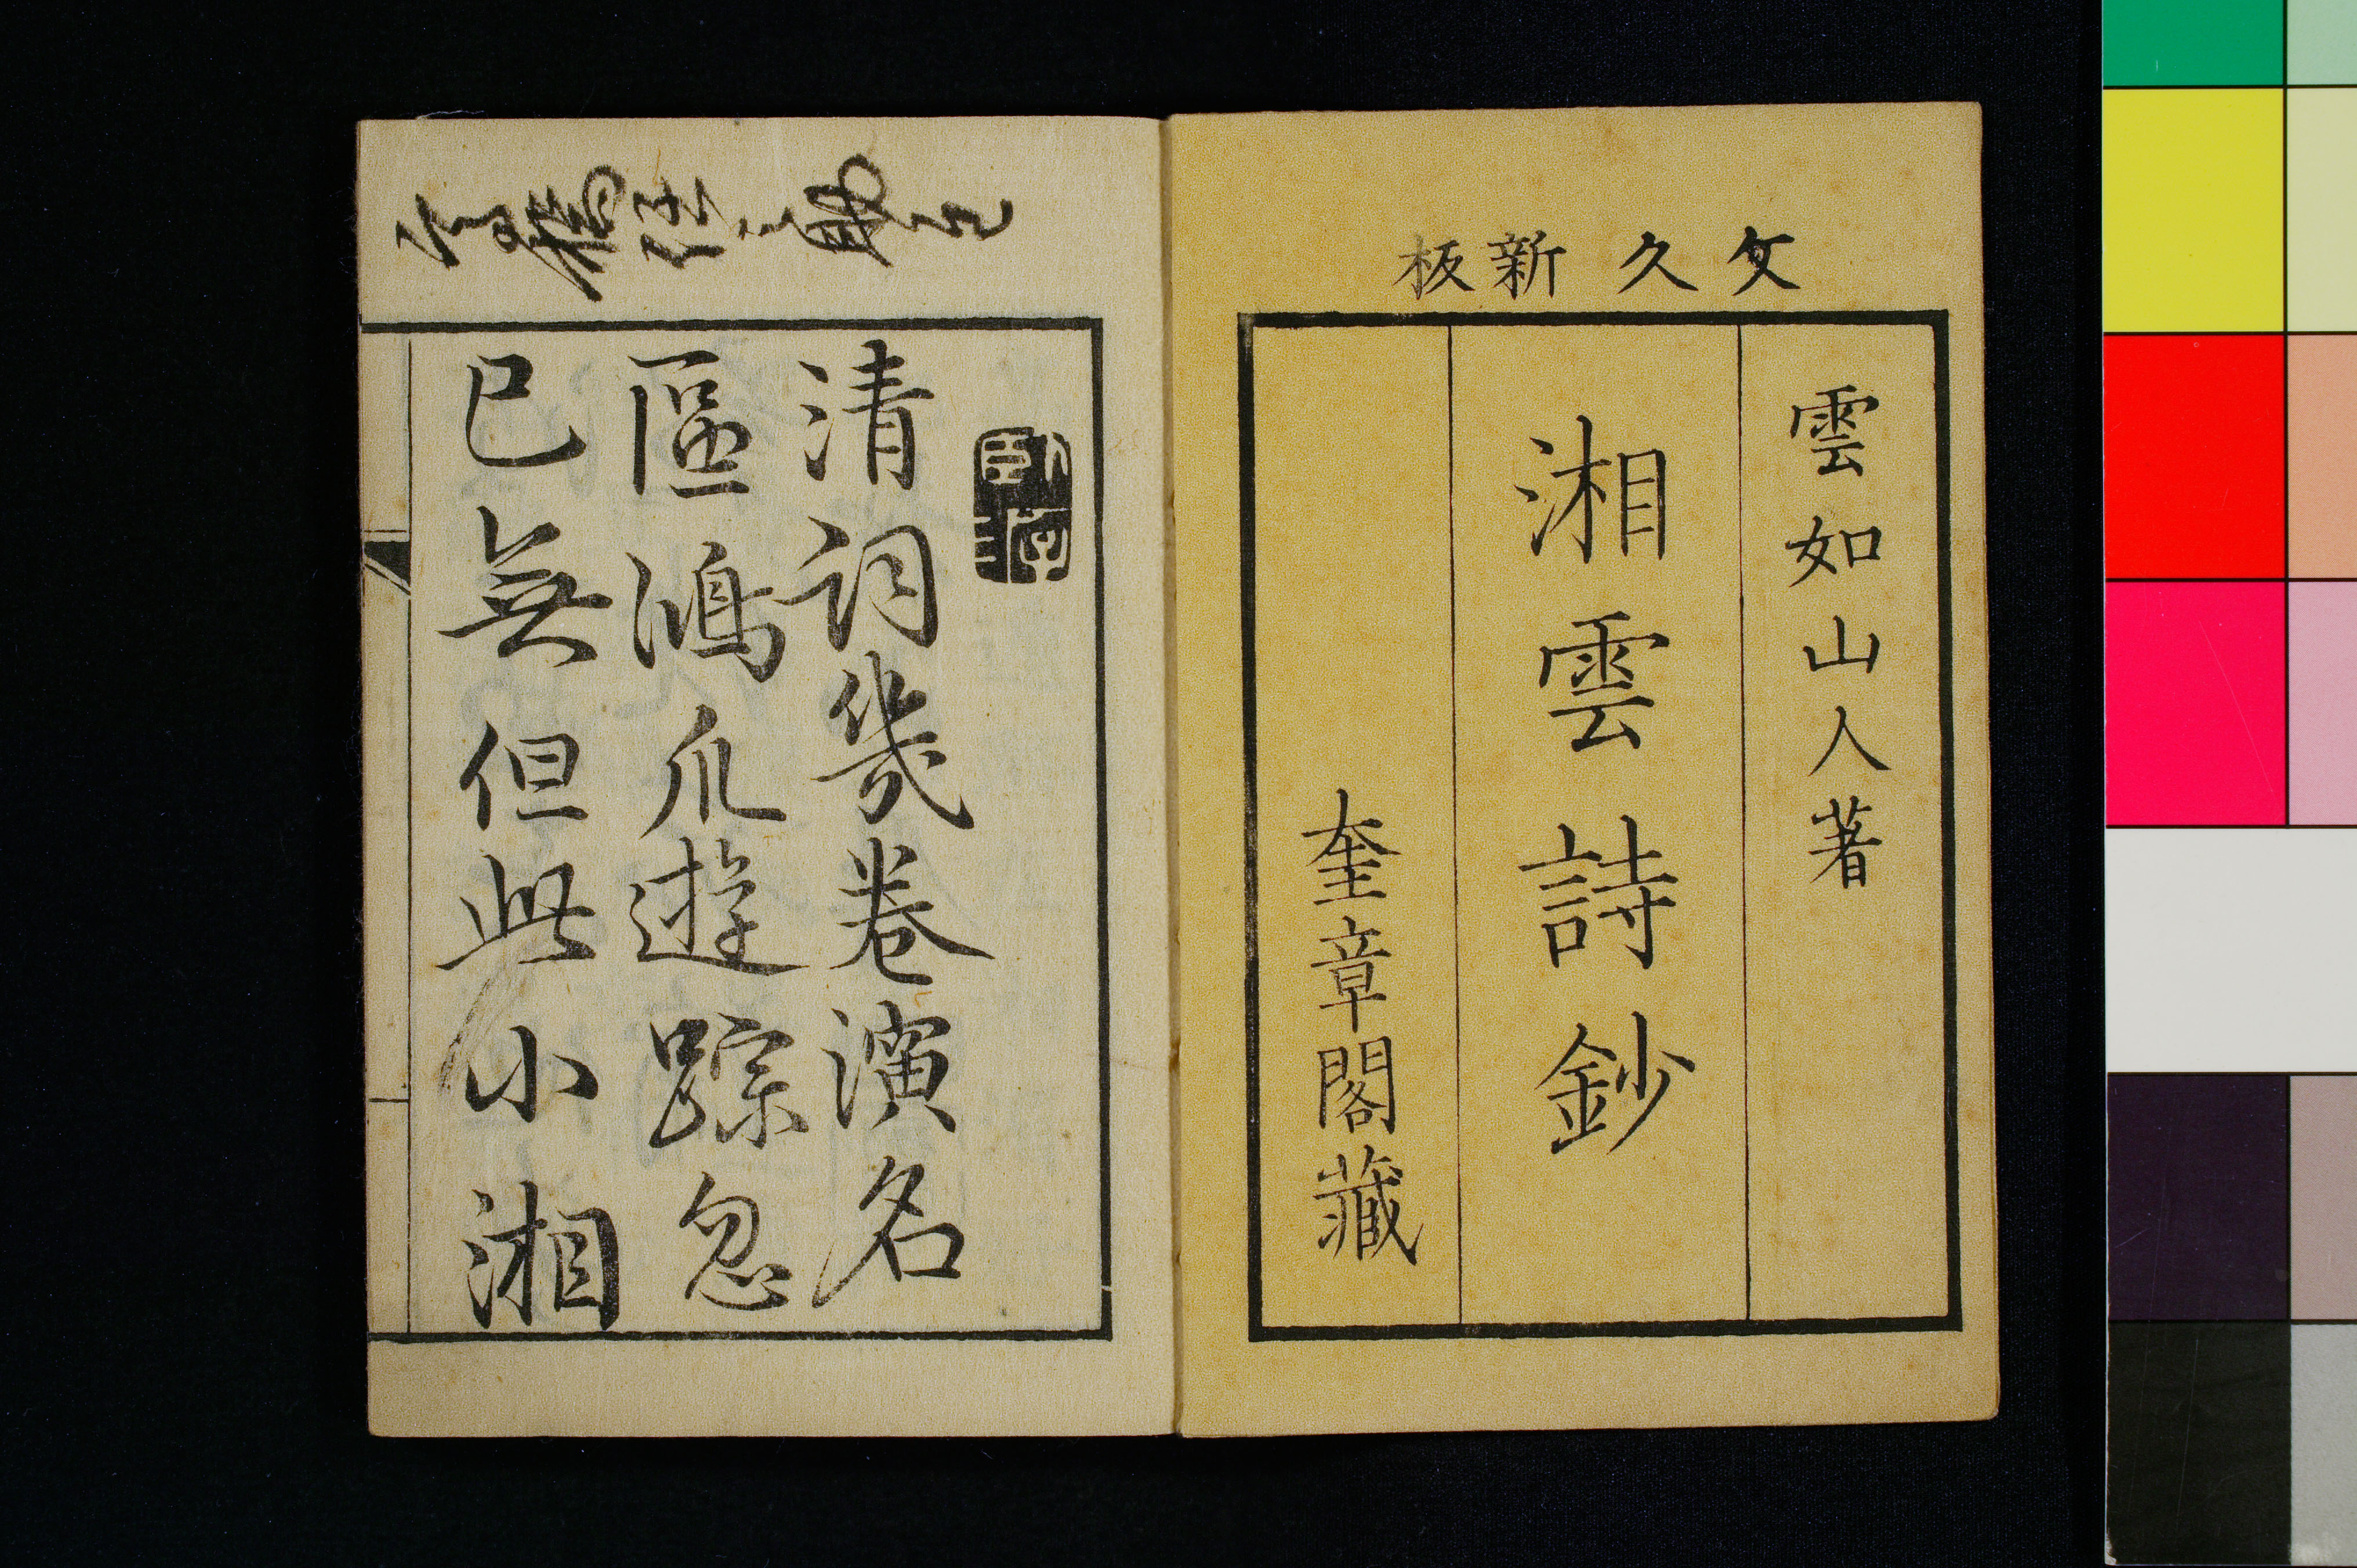 文久新板
雲如山人著
湘雲詩鈔
奎章閣藏
清詞幾卷演名
區鴻爪遊踪忽
已無但此小湘